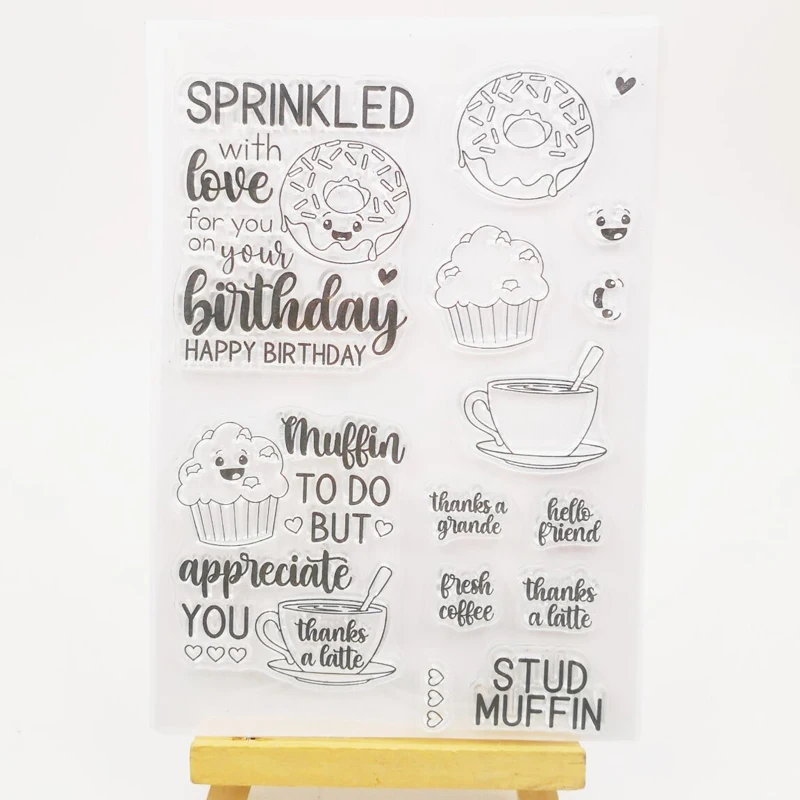 SPRINKLED
with
love
for you
on your
birthday
HAPPY BIRTHDAY
Muffin
TO DO
BUT
appreciate
YOU
thanks
a latte
thanks a
grande
hello
friend
fresh
coffee
thanks
a latte
STUD
MUFFIN